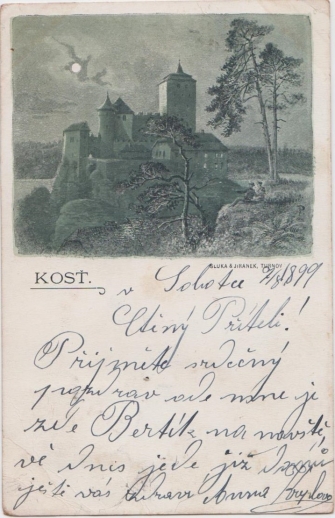 SLUKA & JIRANEK, TURNOV
KOSŤ.
v Sobota 2/8 1899
Ctěný Příteli!
Přijměte srdečný
pozdrav ode mne je
zde Bertík na návště
vě dnes jede již domů
ještě vás zdraví Anna